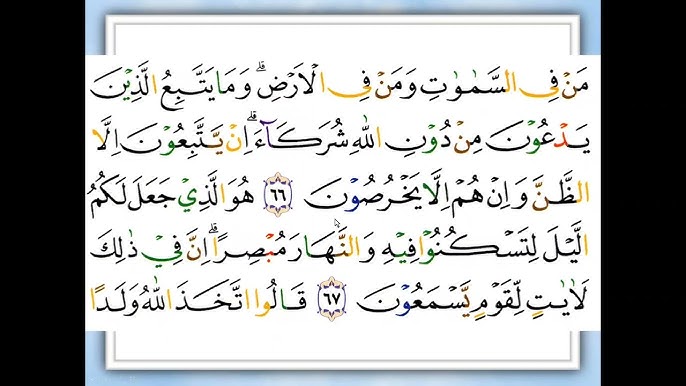 مَنْ فِى السَّمٰوٰتِ وَمَنْ فِى الْاَرْضِ ۗ وَمَا يَتَّبِعُ الَّذِيْنَ
يَدْعُوْنَ مِنْ دُوْنِ اللّٰهِ شُرَكَاۤءَ ۗ اِنْ يَّتَّبِعُوْنَ اِلَّا
الظَّنَّ وَاِنْ هُمْ اِلَّا يَخْرُصُوْنَ ٦٦ هُوَ الَّذِيْ جَعَلَ لَكُمُ
الَّيْلَ لِتَسْكُنُوْا فِيْهِ وَالنَّهَارَ مُبْصِرًا ۗ اِنَّ فِيْ ذٰلِكَ
لَاٰيٰتٍ لِّقَوْمٍ يَّسْمَعُوْنَ ٦٧ قَالُوا اتَّخَذَ اللّٰهُ وَلَدًا